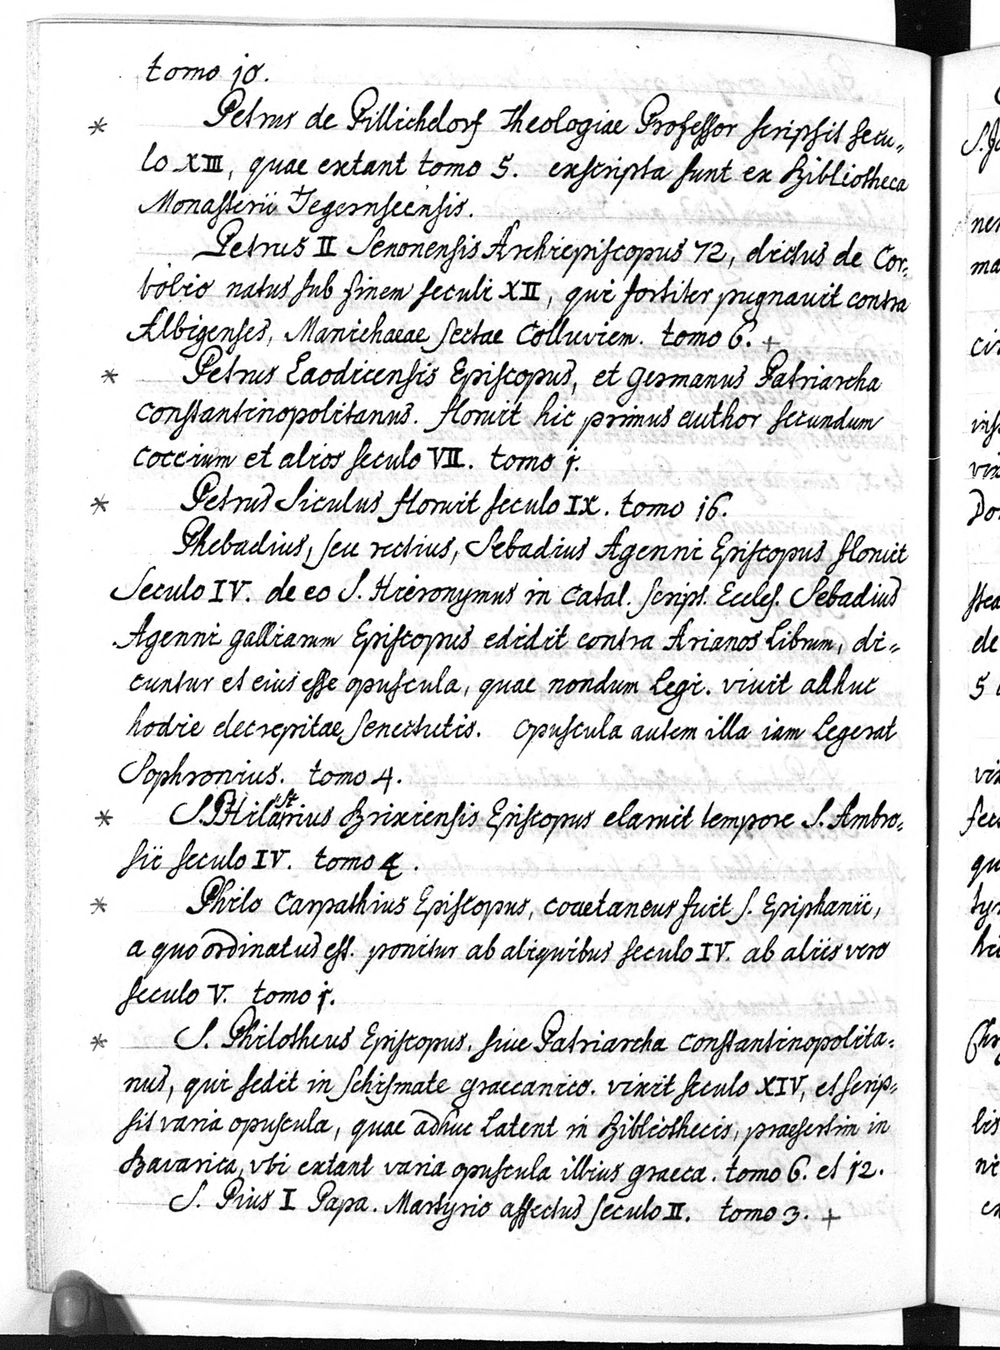 tomo 10.
* Petrus de Pillichdorf Theologiae Professor scripsit secu-
lo XIII, quae extant tomo 5. exscripta sunt ex Bibliotheca
Monasterii Tegernseensis.
Petrus II Senonensis Archiepiscopus 72, dictus de Cor-
bolio natus sub finem seculi XII, qui fortiter pugnavit contra
Albigenses, Manichaeae sectae Colluviem. tomo 6. +
* Petrus Laodicensis Episcopus, et Germanus Patriarcha
Constantinopolitanus. floruit hic primus author secundum
Coccium et alios seculo VII. tomo 1.
* Petrus Siculus floruit seculo IX. tomo 16.
Phebadius, seu rectius, Sebadius Agenni Episcopus floruit
Seculo IV. de eo S. Hieronymus in Catal. Script. Eccles. Sebadius
Agenni galliarum Episcopus edidit contra Arianos Librum, di-
cuntur et eius esse opuscula, quae nondum legi. vivit adhuc
hodie decrepitae senectutis. Opuscula autem illa iam Legerat
Sophronius. tomo 4.
* S. Philastrius Brixiensis Episcopus claruit tempore S. Ambro-
sii seculo IV. tomo 4.
* Philo Carpathius Episcopus, coaetaneus fuit S. Epiphanii,
a quo ordinatus est. ponitur ab aliquibus seculo IV. ab aliis vero
seculo V. tomo 1.
* S. Philotheus Episcopus. sive Patriarcha Constantinopolita-
nus, qui sedit in schismate graecanico. vixit seculo XIV, et scrip-
sit varia opuscula, quae adhuc Latent in Bibliothecis, praesertim in
Bavarica, vbi extant varia opuscula illius graeca. tomo 6. et 12.
S. Pius I Papa. Martyrio affectus seculo II. tomo 3. +